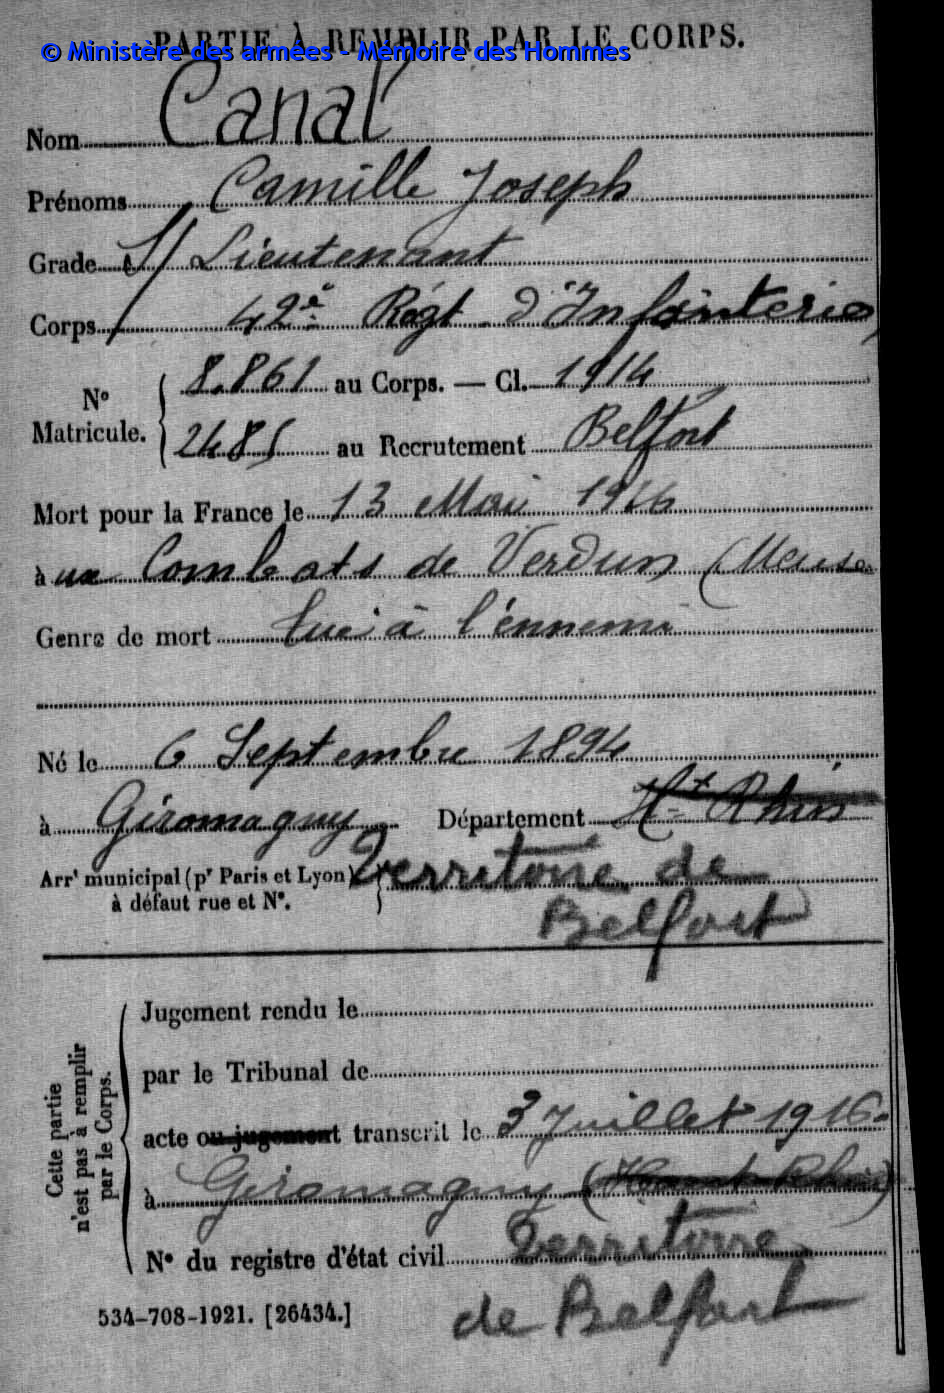 PARTIE À REMPLIR PAR LE CORPS.
© Ministère des armées - Mémoire des Hommes
Nom Canal
Prénoms Camille Joseph
Grade S/Lieutenant
Corps 42e Régt d'Infanterie
No Matricule. 8.861 au Corps. — Cl. 1914
2485 au Recrutement Belfort
Mort pour la France le 13 Mai 1916
à ux Combats de Verdun (Meuse
Genre de mort tué à l'ennemi
Né le 6 Septembre 1894
à Giromagny Département Ht Rhin
Arrt municipal (pr Paris et Lyon) Territoire de
à défaut rue et No. Belfort
Cette partie n'est pas à remplir par le Corps.
Jugement rendu le
par le Tribunal de
acte ou jugement transcrit le 3 Juillet 1916
à Giromagny (Haut Rhin)
No du registre d'état civil Territoire
534-708-1921. [26434.] de Belfort